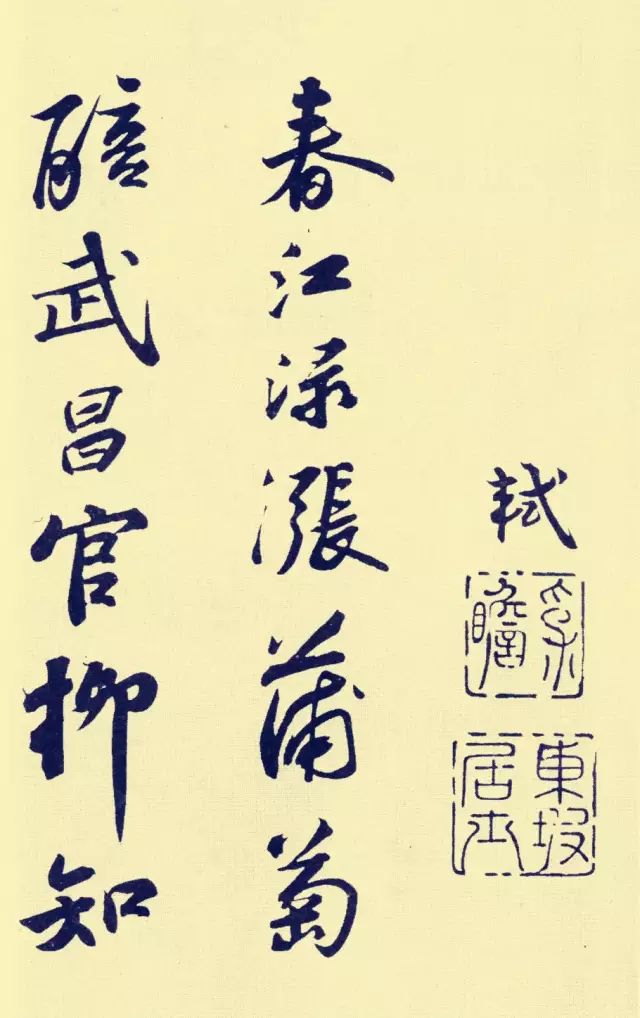 軾
瞻
東坡
居士
春江渌漲蒲萄
醅武昌官柳知